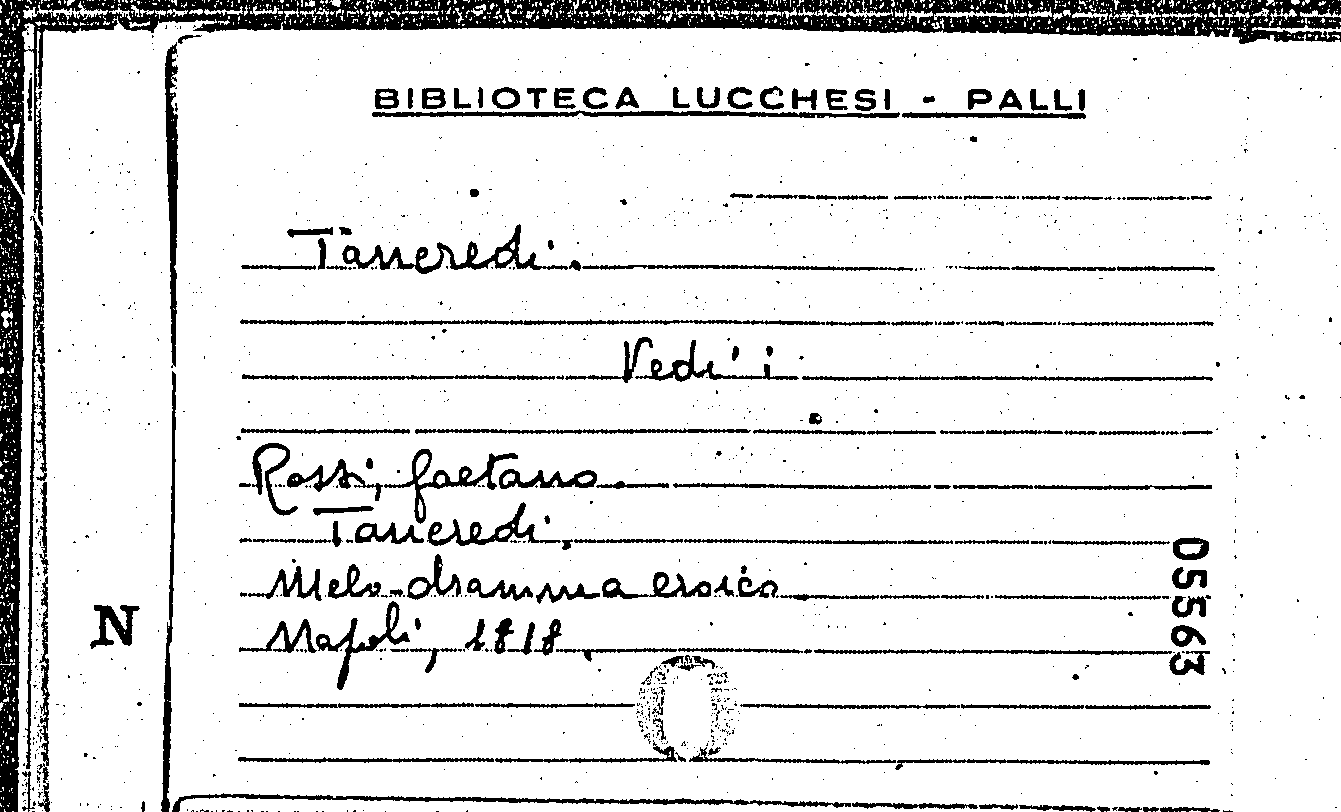 BIBLIOTECA LUCCHESI - PALLI
Tancredi.
Vedi:
Rossi, Gaetano.
Tancredi.
Melo-dramma eroico
Napoli, 1818.
N
05563